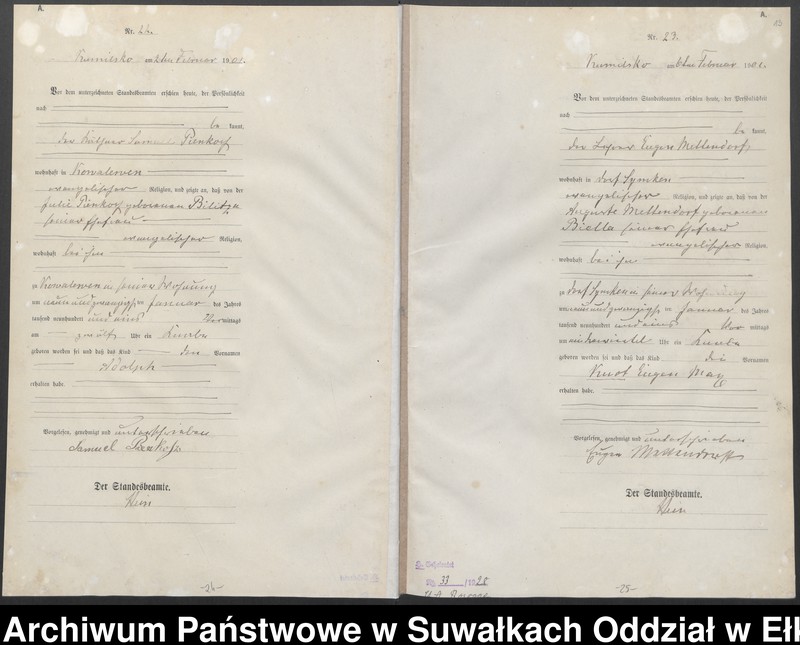 A.
Nr. 22.
Kumilsko am 8ten Februar 1901.
Vor dem unterzeichneten Standesbeamten erschien heute, der Persönlichkeit
nach
be kannt,
der Samuel Pienkoß
wohnhaft in Kowalewen
evangelischer Religion, und zeigte an, daß von der
Julie Pienkoß geborenen Bilitza
seiner Ehefrau
evangelischer Religion,
wohnhaft bei ihm
zu Kowalewen in seiner Wohnung
am neunundzwanzigsten Januar des Jahres
tausend neunhundert und eins Vormittags
um Uhr ein Knabe
geboren worden sei und daß das Kind den Vornamen
Adolph
erhalten habe.
Vorgelesen, genehmigt und unterschrieben
Samuel Pienkoß
Der Standesbeamte.
Hein
-24-
A.
Nr. 23.
Kumilsko am 8ten Februar 1901.
Vor dem unterzeichneten Standesbeamten erschien heute, der Persönlichkeit
nach
be kannt,
der Eugen Mettendorf,
wohnhaft in Dorf Symken
evangelischer Religion, und zeigte an, daß von der
Auguste Mettendorf geborenen
Biella seiner Ehefrau
evangelischer Religion,
wohnhaft bei ihm
zu Dorf Symken in seiner Wohnung
am neunundzwanzigsten Januar des Jahres
tausend neunhundert und eins Vor mittags
um Uhr ein Knabe
geboren worden sei und daß das Kind die Vornamen
Knut Eugen Max
erhalten habe.
Vorgelesen, genehmigt und unterschrieben
Eugen Mettendorff
Der Standesbeamte.
Hein
33 /19 28
-25-
Archiwum Państwowe w Suwałkach Oddział w Ełk